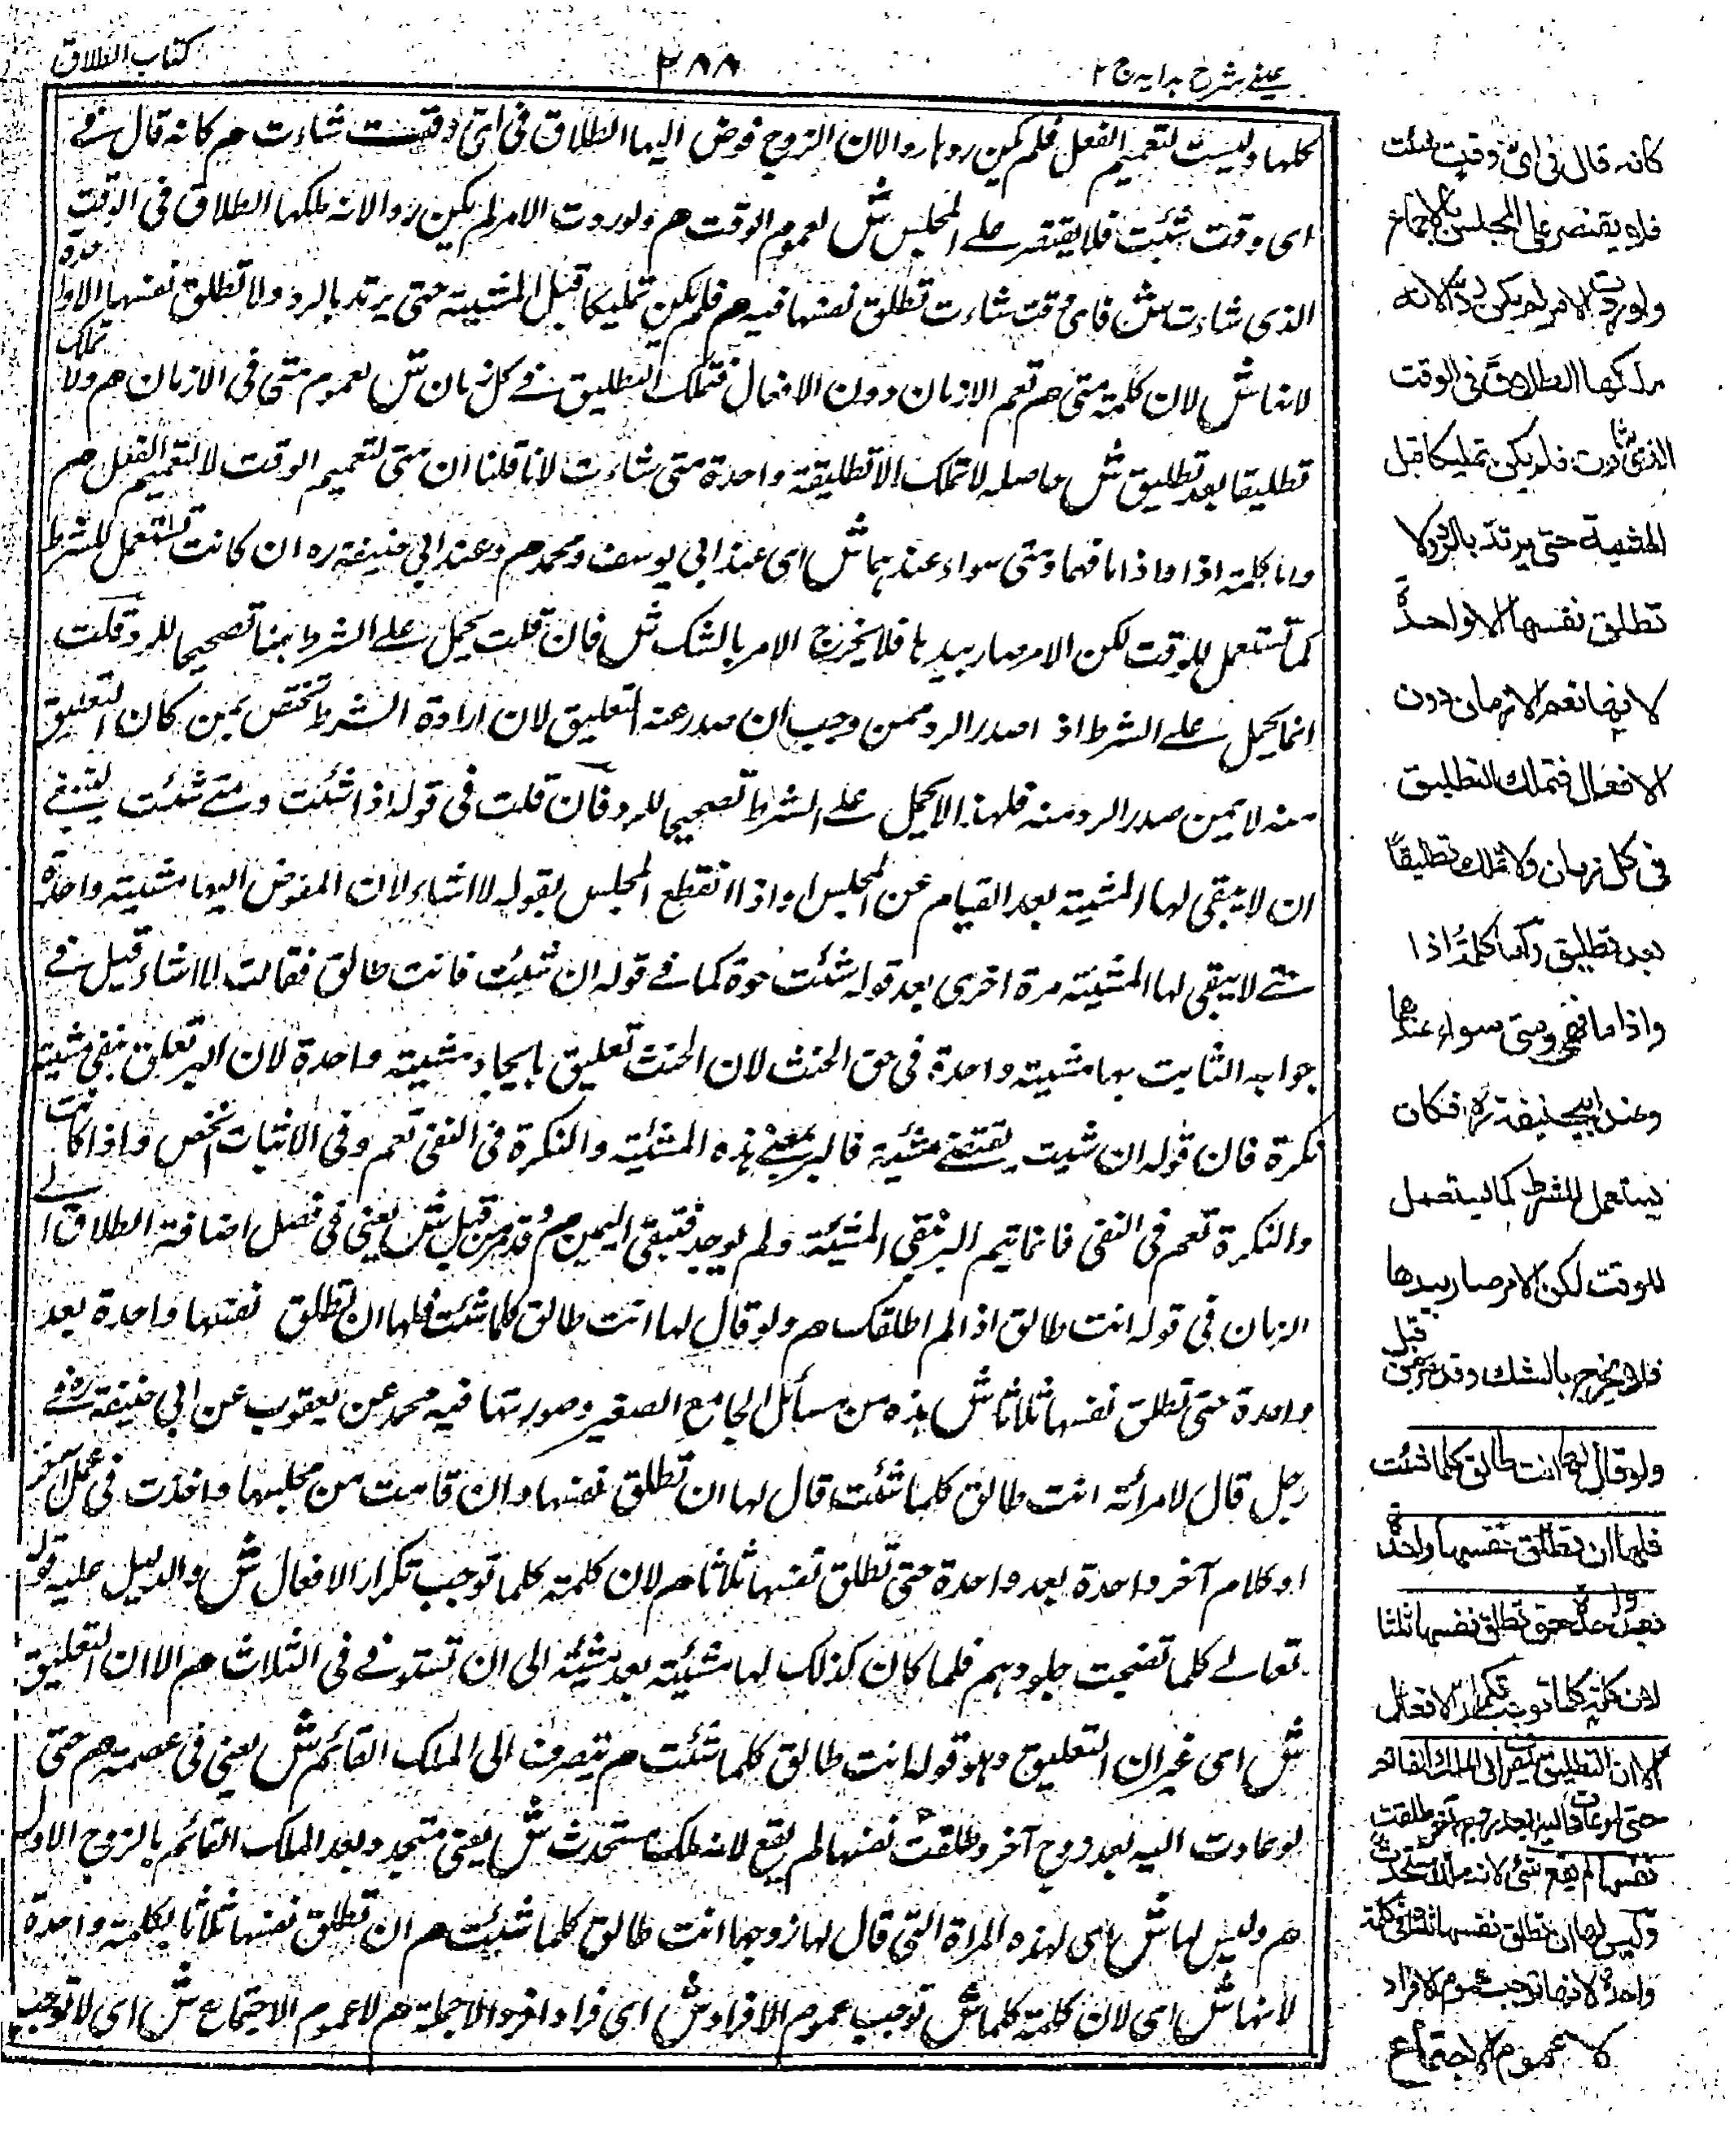 عینے شرح ہدایہ ج ٢
٢٨٨
كتاب الطلاق
كلها وليست لتعميم الفعل فلم يكن ردها ردا لان الزوج فوض اليها الطلاق فى اى وقت شاءت هم كانه قال فے
اى وقت شئت فلا يقتصر علے المجلس ش لعموم الوقت هم ولو ردت الامر لم يكن ردا لانه ملكها الطلاق فى الوقت
الذى شاءت ش فاى وقت شاءت تطلق نفسها فيه هم فلم يكن تمليكا قبل المشيئة حتى يرتد بالرد ولا تطلق نفسها الا واحدة
لانها ش لان كلمة متى هم تعم الازمان دون الافعال فتملك التطليق فے كل زمان ش لعموم متى فى الازمان هم ولا تملك
تطليقا بعد تطليق ش حاصله لا تملك الا تطليقة واحدة متى شاءت لانا قلنا ان متى لتعميم الوقت لا لتعميم الفعل هم
واما كلمة اذا واذا ما فهما ومتى سواء عندهما ش اى عند ابى يوسف ومحمد هم وعند ابى حنيفة ره ان كانت تستعمل للشرط
كما تستعمل للوقت لكن الامر صار بيدها فلا يخرج الامر بالشك ش فان قلت يحمل علے الشرط هنا تصحيحا للرد قلت
انما يحمل علے الشرط اذا صدر الرد ممن وجب ان صدر عنه التعليق لان ارادة الشرط تختص بمن كان التعليق
منه لا بمن صدر الرد منه فلهذا لا يحمل علے الشرط تصحيحا للرد فان قلت فى قوله اذا شئت ومتے شئت ينبغے
ان لا يبقى لها المشيئة بعد القيام عن المجلس او اذا انقطع المجلس بقوله لا اشاء لان المفوض اليها مشيئة واحدة
حتے لا يبقى لها المشيئة مرة اخرى بعد قوله شئت كما فے قوله ان شئت فانت طالق فقالت لا اشاء قيل فے
جوابه الثابت بها مشيئة واحدة فى حق الحنث لان الحنث تعليق بايجاد مشيئة واحدة لان البر تعلق بنفى مشيئة
نكرة فان قوله ان شيت يقتضے مشيئة فالبر بنفے هذه المشيئة والنكرة فى النفى تعم وفى الاثبات تخص واذا كانت
والنكرة تعم فى النفى فانما يتم البر بنفى المشيئة ولم يوجد فتبقى اليمين هم وقد مر من قبل ش يعنى فى فصل اضافة الطلاق الے
الزمان فى قوله انت طالق اذا لم اطلقك هم ولو قال لها انت طالق كلما شئت فلها ان تطلق نفسها واحدة بعد
واحدة حتى تطلق نفسها ثلاثا ش هذه من مسائل الجامع الصغير وصورتها فيه محمد عن يعقوب عن ابى حنيفة ره فے
رجل قال لامرأته انت طالق كلما شئت قال لها ان تطلق نفسها وان قامت من مجلسها واخذت فى عمل آخر
او كلام آخر واحدة بعد واحدة حتى تطلق نفسها ثلاثا هم لان كلمة كلما توجب تكرار الافعال ش والدليل عليه قوله
تعالے كلما نضجت جلودهم فلما كان كذلك لها مشيئة بعد مشيئة الى ان تستوفے فى الثلاث هم الا ان التعليق
ش اى غير ان التعليق وهو قوله انت طالق كلما شئت هم يتصرف الى الملك القائم ش يعنى فى عصمته هم حتى
لو عادت اليه بعد زوج آخر وطلقت نفسها لم يقع لانه ملك مستحدث ش يعنى متجدد بعد الملك القائم بالزوج الاول
هم وليس لها ش اى لهذه المراة التى قال لها زوجها انت طالق كلما شئت هم ان تطلق نفسها ثلاثا بكلمة واحدة
لانها ش اى لان كلمة كلما ش توجب عموم الافراد ش اى فرادا فردا لا جملة هم لا عموم الاجتماع ش اى لا توجب
كانه قال فى اى وقت شئت
فلا يقتصر على المجلس بالاجماع
ولو ردت الامر لم يكن ردا لانه
ملكها الطلاق فى الوقت
الذى شاءت فلم يكن تمليكا قبل
المشية حتى يرتد بالرد ولا
تطلق نفسها الا واحدة
لانها تعم الازمان دون
الافعال فتملك التطليق
فى كل زمان ولا تملك تطليقا
بعد تطليق واما كلمة اذا
واذا ما فهى ومتى سواء عندهما
وعند ابى حنيفة ره ان كان
يستعمل للشرط كما يستعمل
للوقت لكن الامر صار بيدها
فلا يخرج بالشك وقد مر من قبل
ولو قال لها انت طالق كلما شئت
فلها ان تطلق نفسها واحدة
بعد واحدة حتى تطلق نفسها ثلثا
لان كلمة كلما توجب تكرار الافعال
الا ان التعليق ينصرف الى الملك القائم
حتى لو عادت اليه بعد زوج آخر فطلقت
نفسها لم يقع شئ لانه ملك مستحدث
وليس لها ان تطلق نفسها ثلثا بكلمة
واحدة لانها توجب عموم الافراد
لا عموم الاجتماع